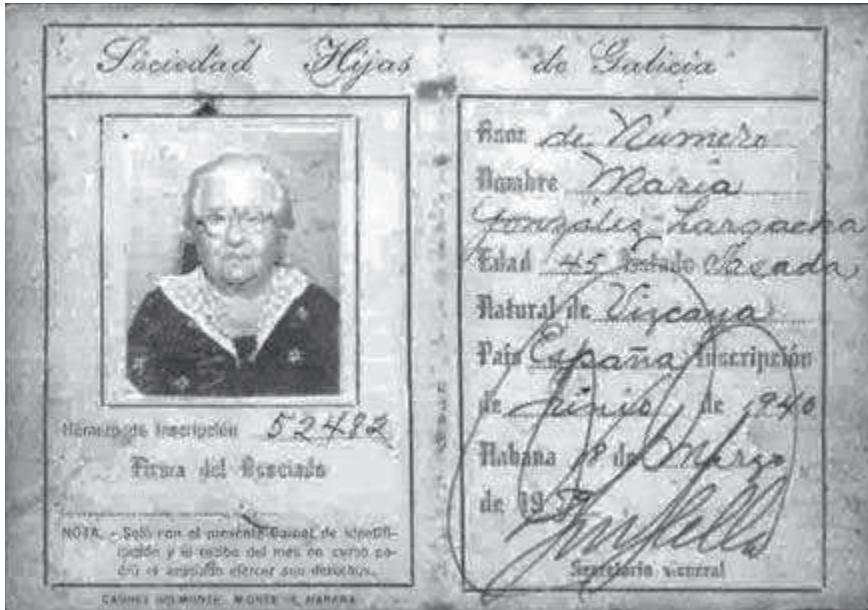 Sociedad Hijas de Galicia
Número de Inscripción 52482
Firma del Asociado
NOTA. - Solo con el presente Carnet de identifi-
cación y el recibo del mes en curso po-
drá el asociado ejercer sus derechos.
CARNET BELMONTE. MONTE HABANA
de Número
Nombre Maria
González Largacha
Edad 45 Estado Casada
Natural de Vizcaya
País España Inscripción
de Junio de 1940
Habana 18 de Marzo
de 19
Secretario General